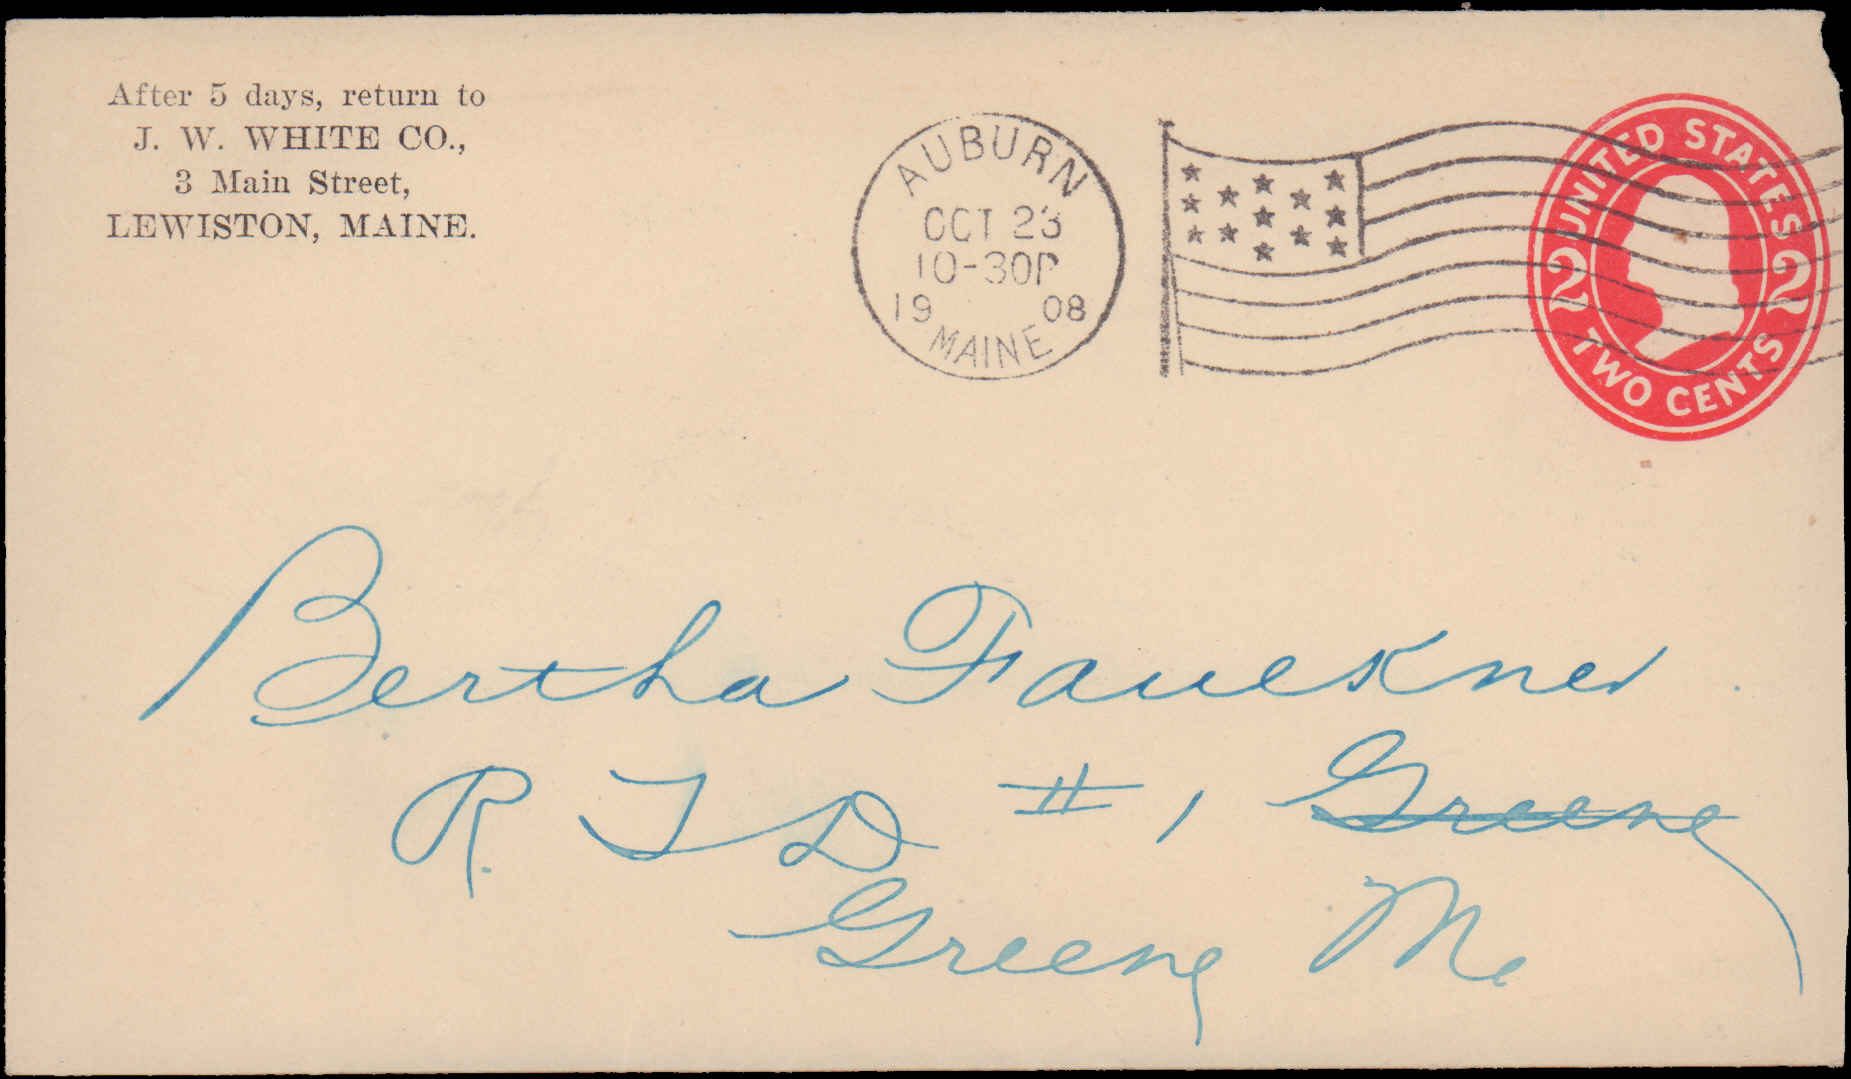 After 5 days, return to
J. W. WHITE CO.,
3 Main Street,
LEWISTON, MAINE.
AUBURN
OCT 23
10-30P
19 08
MAINE
UNITED STATES
2 2
TWO CENTS
Bertha Faulkner
R. F D # 1, Greene
Greene Me